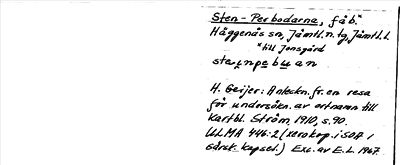 Sten-Perbodarna, fåb.*
Häggenås sn, Jämtl. n. tg, Jämtl. l.
*till Jonsgård
H. Geijer: Anteckn. fr. en resa
för undersökn. av ortnamn till
kartbl. Ström, 1910, s. 90.
ULMA 446:2 (xerokop. i SOA,
särsk. kapsel.) Exc. av E.L. 1967